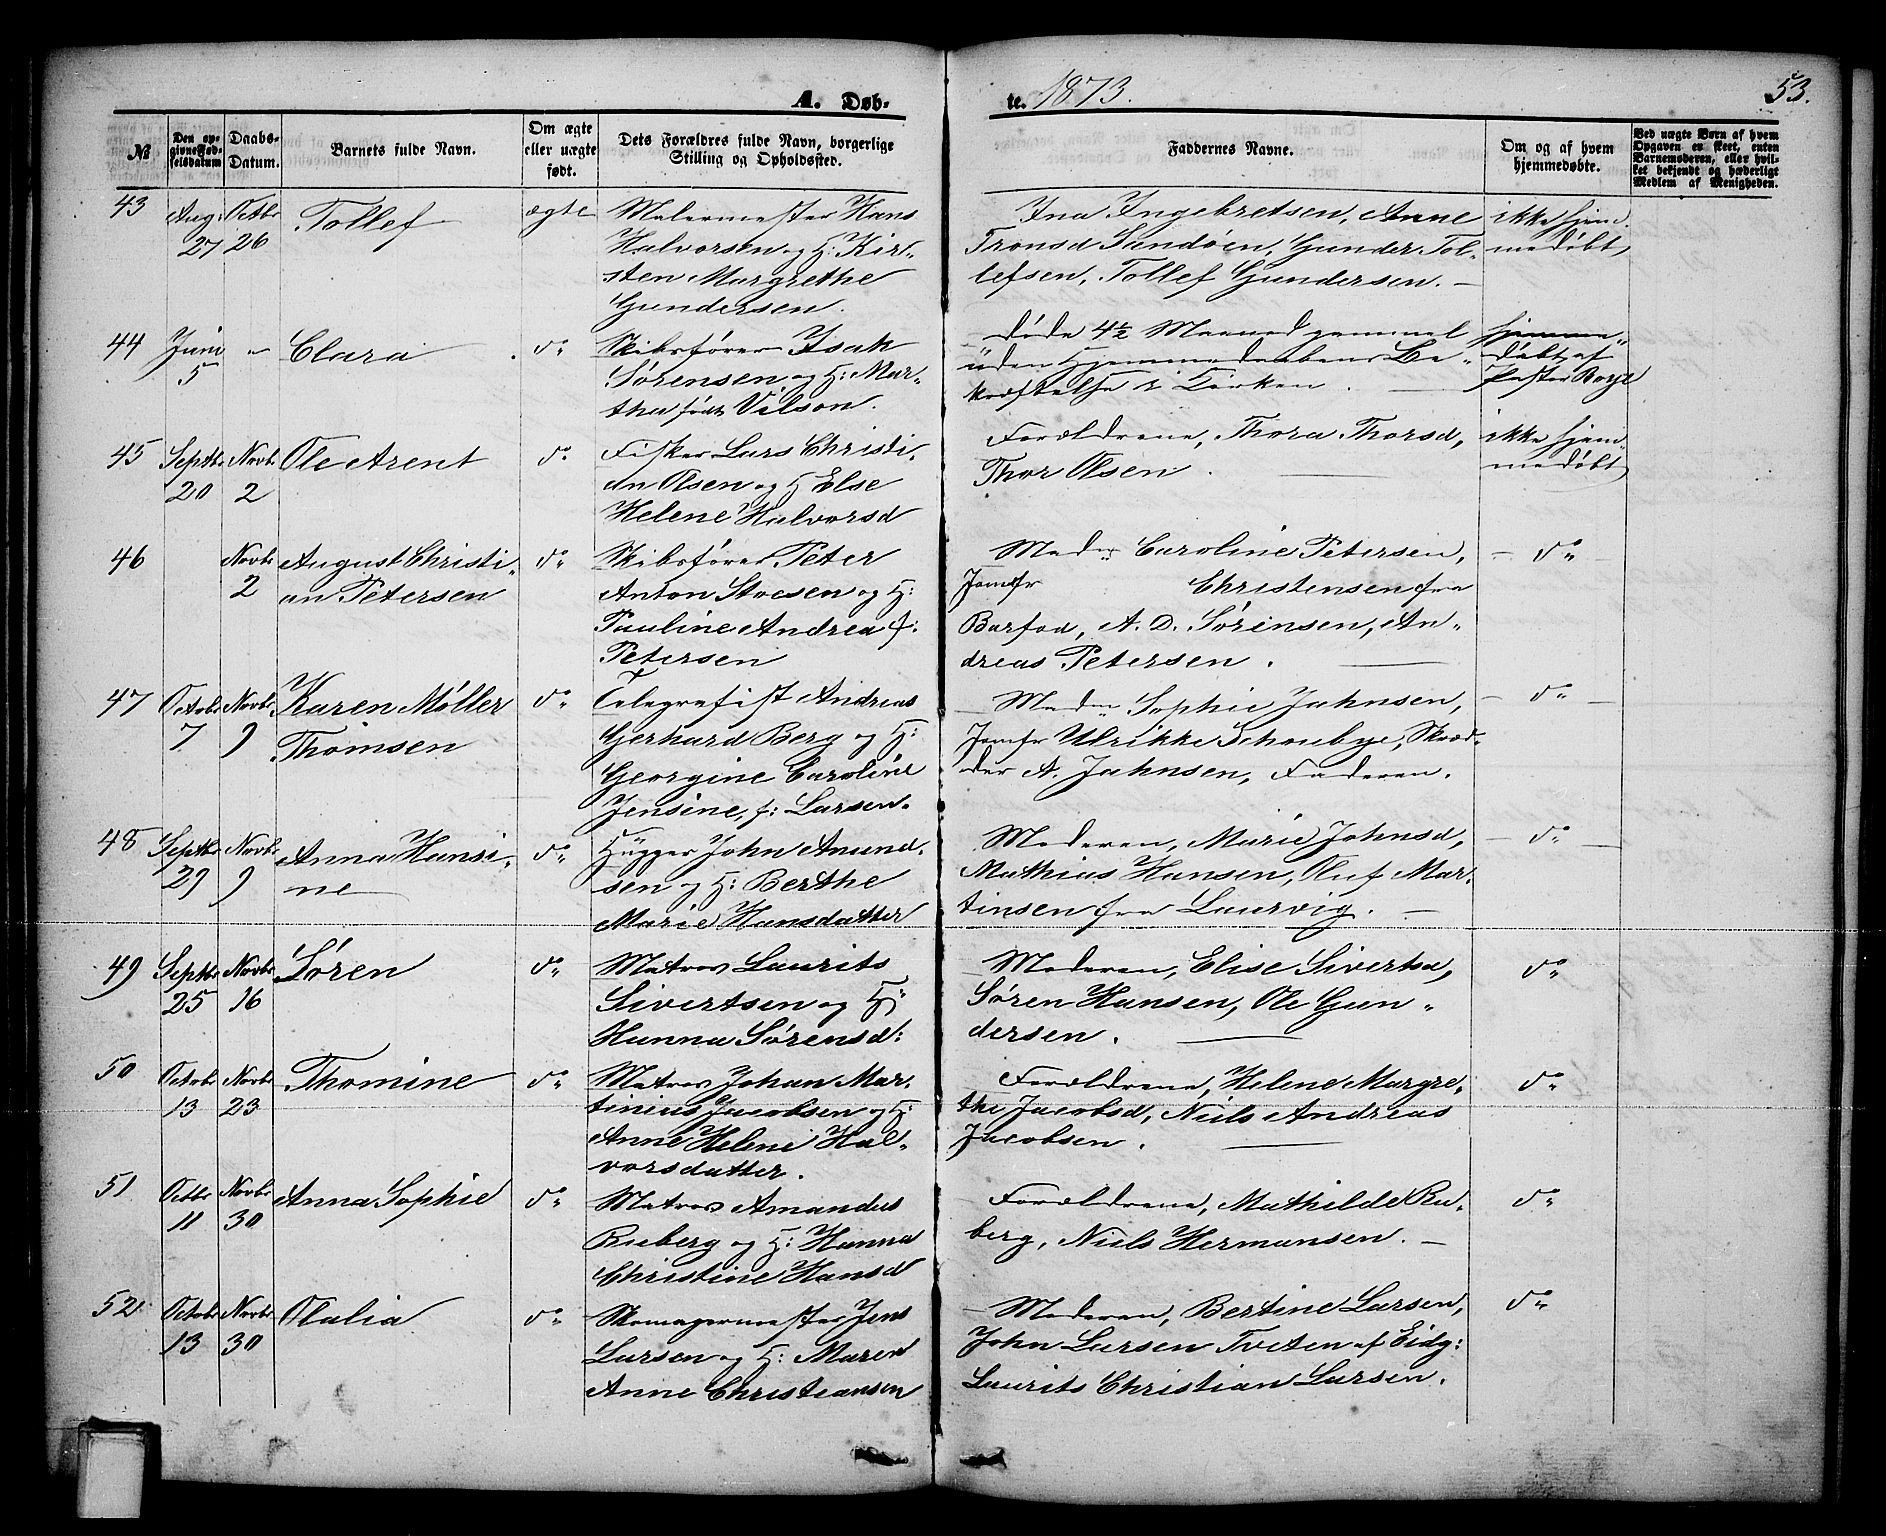 A. Døb-
te. 1873.
53.
№
Den op-
givne Fød-
selsdatum
Daabs-
Datum.
Barnets fulde Navn.
Om ægte
eller uægte
født.
Dets Forældres fulde Navn, borgerlige
Stilling og Opholdssted.
Faddernes Navne.
Om og af hvem
hjemmedøbte.
Ved uægte Børn af hvem
Opgaven er skeet, enten
Barnemoderen, eller hvil-
ket bekjendt og hæderligt
Medlem af Menigheden.
43 Aug: 27 Octbr 26 Tollef ægte
Malermester Hans
Halvorsen og H: Kir-
sten Margrethe
Gundersen.
Ina Ingebretsen, Anne
Tronsd Sundöen, Gunder Tol-
lefsen, Tollef Gundersen. —
ikke hjem
medøbt
44 Juni 5 " Clara do
Skibsfører Isak
Sørensen og H: Mar-
tha født Vilson.
døde 4½ Maaned gammel
uden Hjemmedaabens Be-
kræftelse i Kirken.
hjemme"
døbt af
Pastor Borge
45 Septbr 20 Novbr 2 Ole Arent do
Fisker Lars Christi-
an Olsen og H Else
Helene Halvorsd
Forældrene, Thora Thorsd,
Thor Olsen.
ikke hjem
medøbt
46 Novbr 2 August Christi-
an Petersen do
Skibsfører Peter
Anton Stoesen og H:
Pauline Andrea f:
Petersen
Mad: Caroline Petersen,
Jomfr Christensen fra
Barfod, A. D. Sørinsen, An-
dreas Petersen.
do
47 Octobr 7 Novbr 9 Karen Møller
Thomsen do
Telegrafist Andreas
Gerhard Berg og H:
Georgine Caroline
Jensine, f: Larsen.
Mad: Sophie Jahnsen,
Jomfr Ulrikke Schoubye, Skræd-
der A. Jahnsen, Faderen.
do
48 Septbr 29 Novbr 9 Anna Hansi-
ne do
Hugger John Amund-
sen og H: Berthe
Marie Hansdatter
Moderen, Marie Johnsd,
Mathias Hansen, Oluf Mar-
tinsen fra Laurvig. —
do
49 Septbr 25 Novbr 16 Søren do
Matros Laurits
Sivertsen og H:
Hanna Sørensd:
Moderen, Elise Sivertsd,
Søren Hansen, Ole Gun-
dersen.
do
50 Octobr 13 Novbr 23 Thomine do
Matros Johan Mar-
tinius Jacobsen og H:
Anne Helene Hal-
vorsdatter.
Forældrene, Helene Margre-
the Jacobsd, Niels Andreas
Jacobsen.
do
51 Octbr 11 Novbr 30 Anna Sophie do
Matros Amandus
Rueberg og H: Hanna
Christine Hansd
Forældrene, Mathilde Ru-
berg, Niels Hermansen. —
do
52 Octobr 13 Novbr 30 Olalia do
Skomagermester Jens
Larsen og H: Maren
Anne Christiansen
Moderen, Bertine Larsen,
John Larsen Tveten af Eidg:
Laurits Christian Larsen.
do